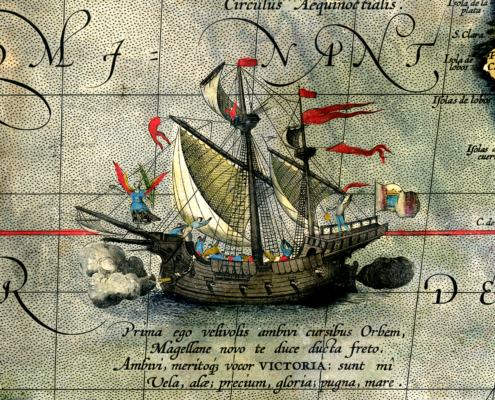 Circulus Aequinoctialis.
Isola de la
plata.
S. Clara.
Isola de
lobos
M I - N A N T
Isolas de lobos
Isolas de
C. de
R D E
Prima ego velivolis ambivi cursibus Orbem,
Magellane novo te duce ducta freto.
Ambivi, meritoq; vocor VICTORIA: sunt mi
Vela, alæ; precium, gloria; pugna, mare.